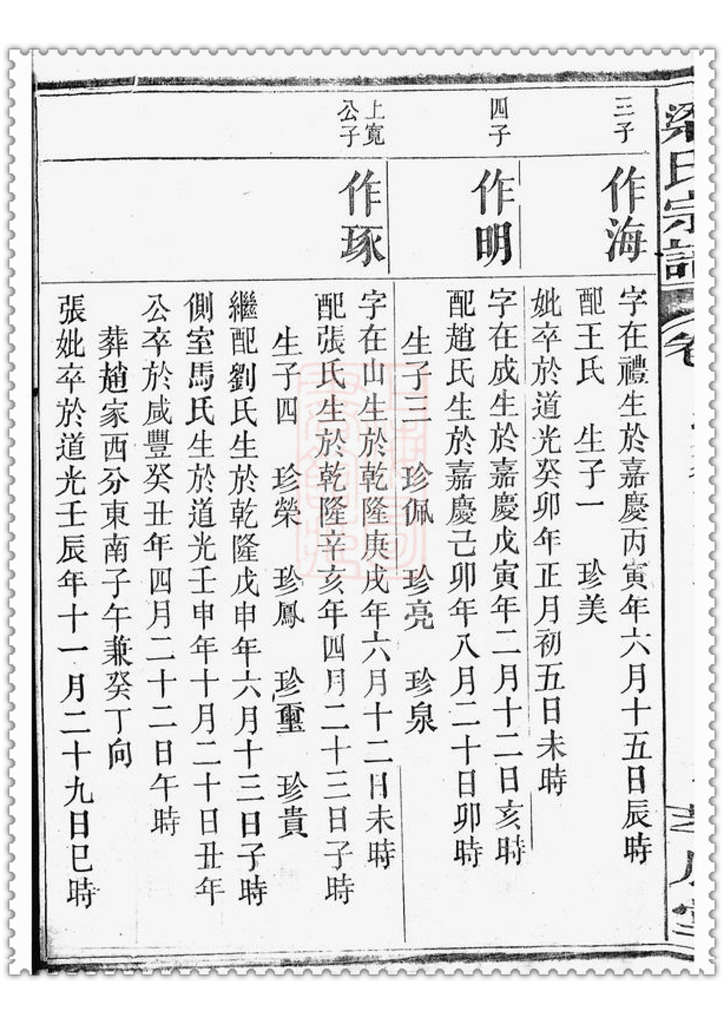 梁氏宗譜
三子
作海
字在禮生於嘉慶丙寅年六月十五日辰時
配王氏　生子一　珍美
妣卒於道光癸卯年正月初五日未時
四子
作明
字在成生於嘉慶戊寅年二月十二日亥時
配趙氏生於嘉慶己卯年八月二十日卯時
生子三　珍佩　珍亮　珍泉
上寬
公子
作琢
字在山生於乾隆庚戌年六月十二日未時
配張氏生於乾隆辛亥年四月二十三日子時
生子四　珍榮　珍鳳　珍璽　珍貴
繼配劉氏生於乾隆戊申年六月十三日子時
側室馬氏生於道光壬申年十月二十日丑年
公卒於咸豐癸丑年四月二十二日午時
葬趙家西分東南子午兼癸丁向
張妣卒於道光壬辰年十一月二十九日巳時